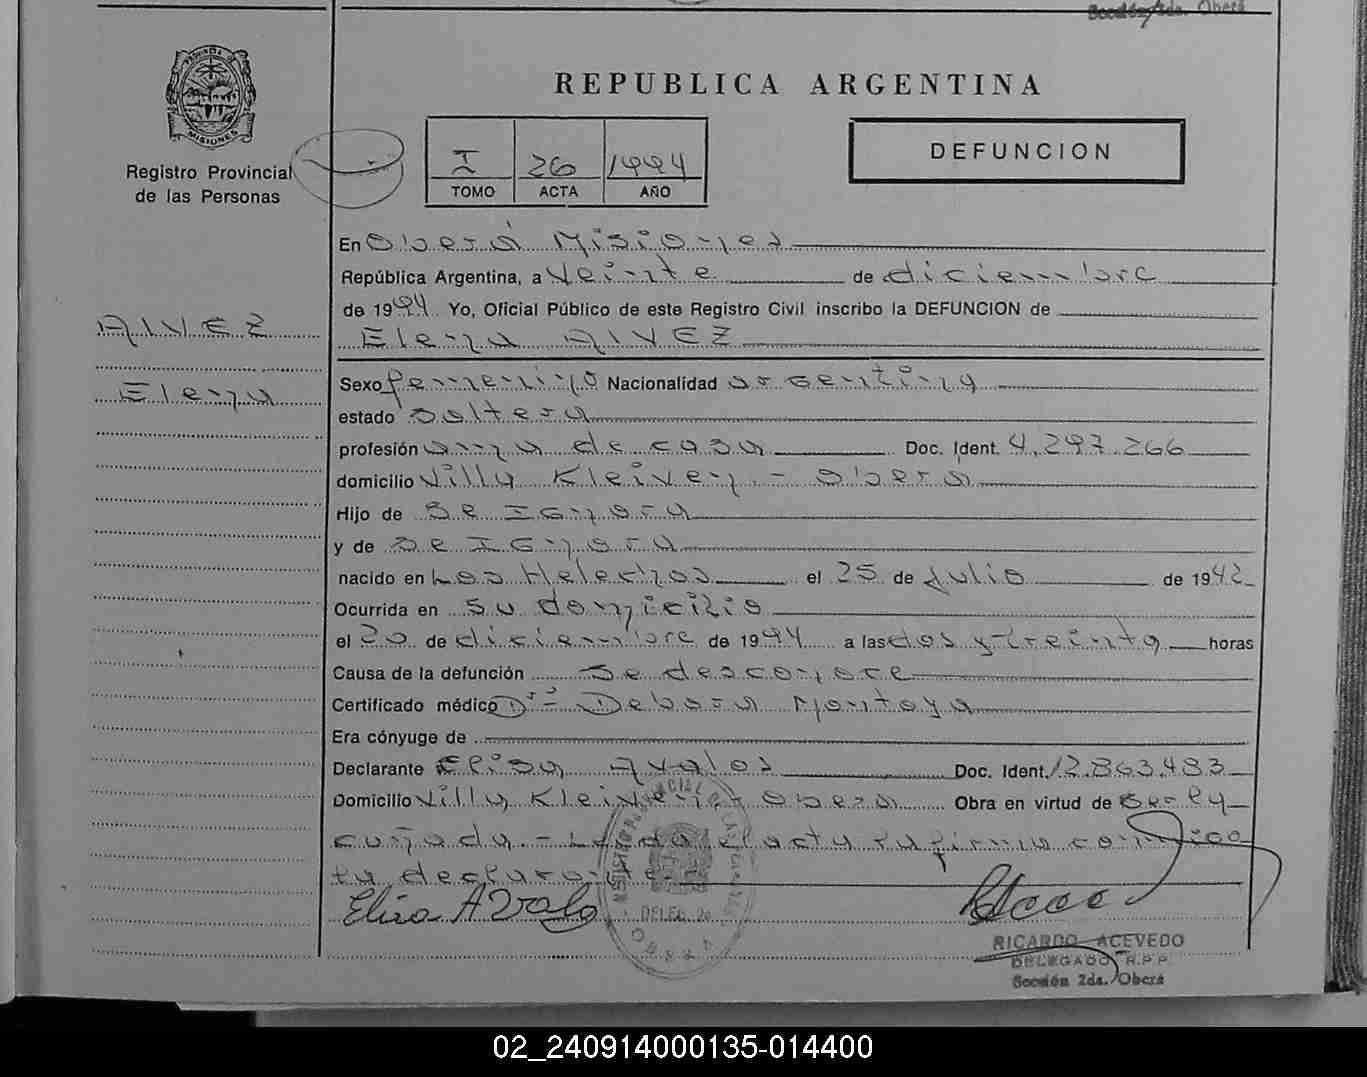 Sección 2da. Oberá
MISIONES
REPUBLICA ARGENTINA
Registro Provincial
de las Personas
I 26 1994
TOMO ACTA AÑO
DEFUNCION
En Oberá Misiones
República Argentina, a veinte de diciembre
de 1994 Yo, Oficial Público de este Registro Civil inscribo la DEFUNCION de
Elena ALVEZ
ALVEZ
Elena
Sexo femenino Nacionalidad argentina
estado soltera
profesión ama de casa Doc. Ident. 4.297.266
domicilio Villa Kleiven. - Oberá
Hijo de Se Ignora
y de Se Ignora
nacido en Los Helechos el 25 de Julio de 1942
Ocurrida en su domicilio
el 20 de diciembre de 1994 a las dos y treinta horas
Causa de la defunción Se desconoce
Certificado médico Dra Debora Montoya
Era cónyuge de
Declarante Elisa Avalos Doc. Ident. 12.863.483
Domicilio Villa Kleiven - Oberá Obra en virtud de Ser la
cuñada. - Leída el acta la firma conmigo
la declarante
Elisa Avalo
DELEG. 2a
RICARDO ACEVEDO
DELEGADO R.P.P.
Sección 2da. Oberá
02_240914000135-014400